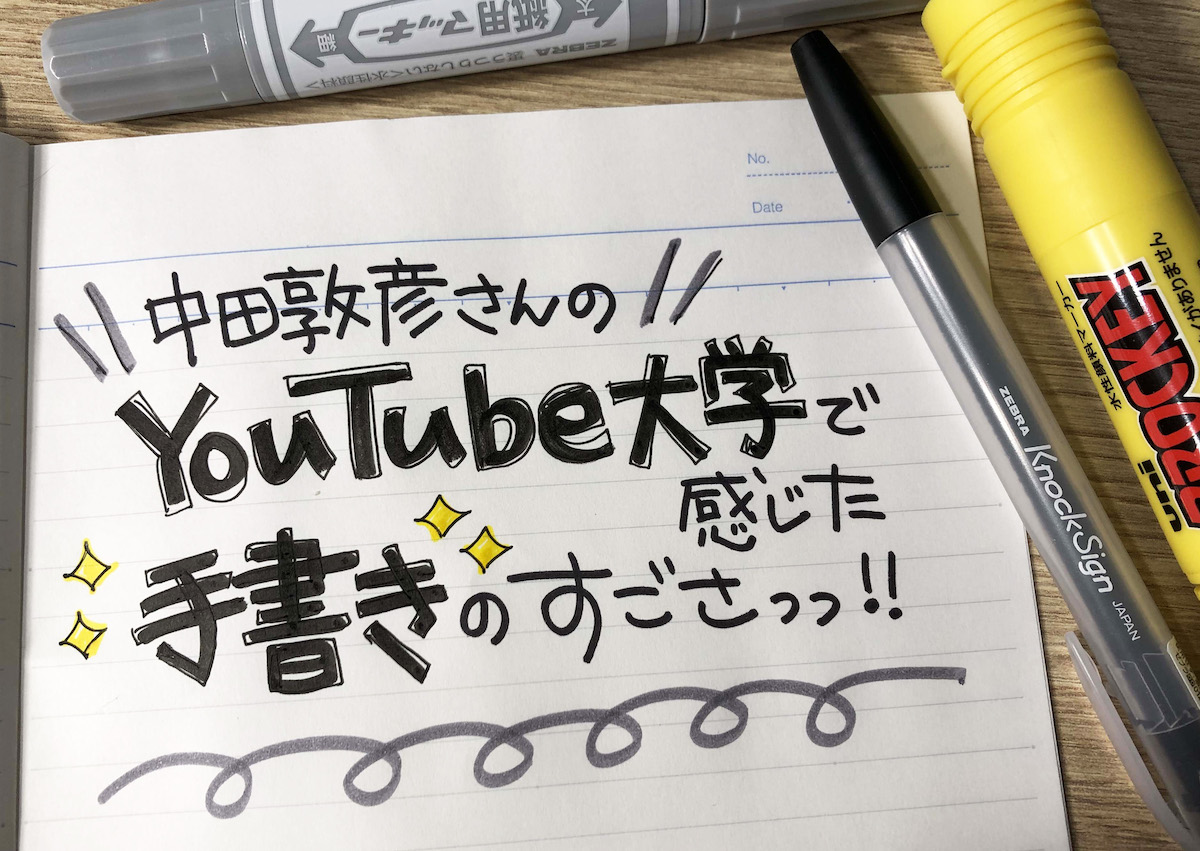 紙用マッキー
ZEBRA 裏うつりしない<水性顔料>
No.
Date
中田敦彦さんの
YouTube大学で
感じた
手書きのすごさっっ!!
ZEBRA KnockSign JAPAN
uni PROCKEY
水性顔料マーカー
がありません